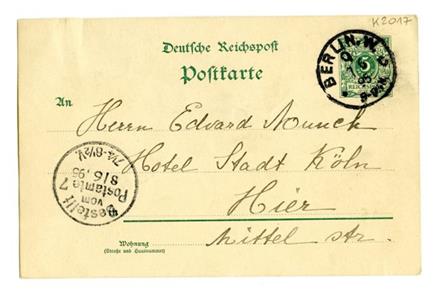 K2017
Deutsche Reichspost
Postkarte
BERLIN. W.
5
An
Herrn Edvard Munck
Hotel Stadt Köln
Hier
Mittel str.
Bestellt
vom
Postamte 7
8/6.95
7¼-8½V.
Wohnung
(Straße und Hausnummer)